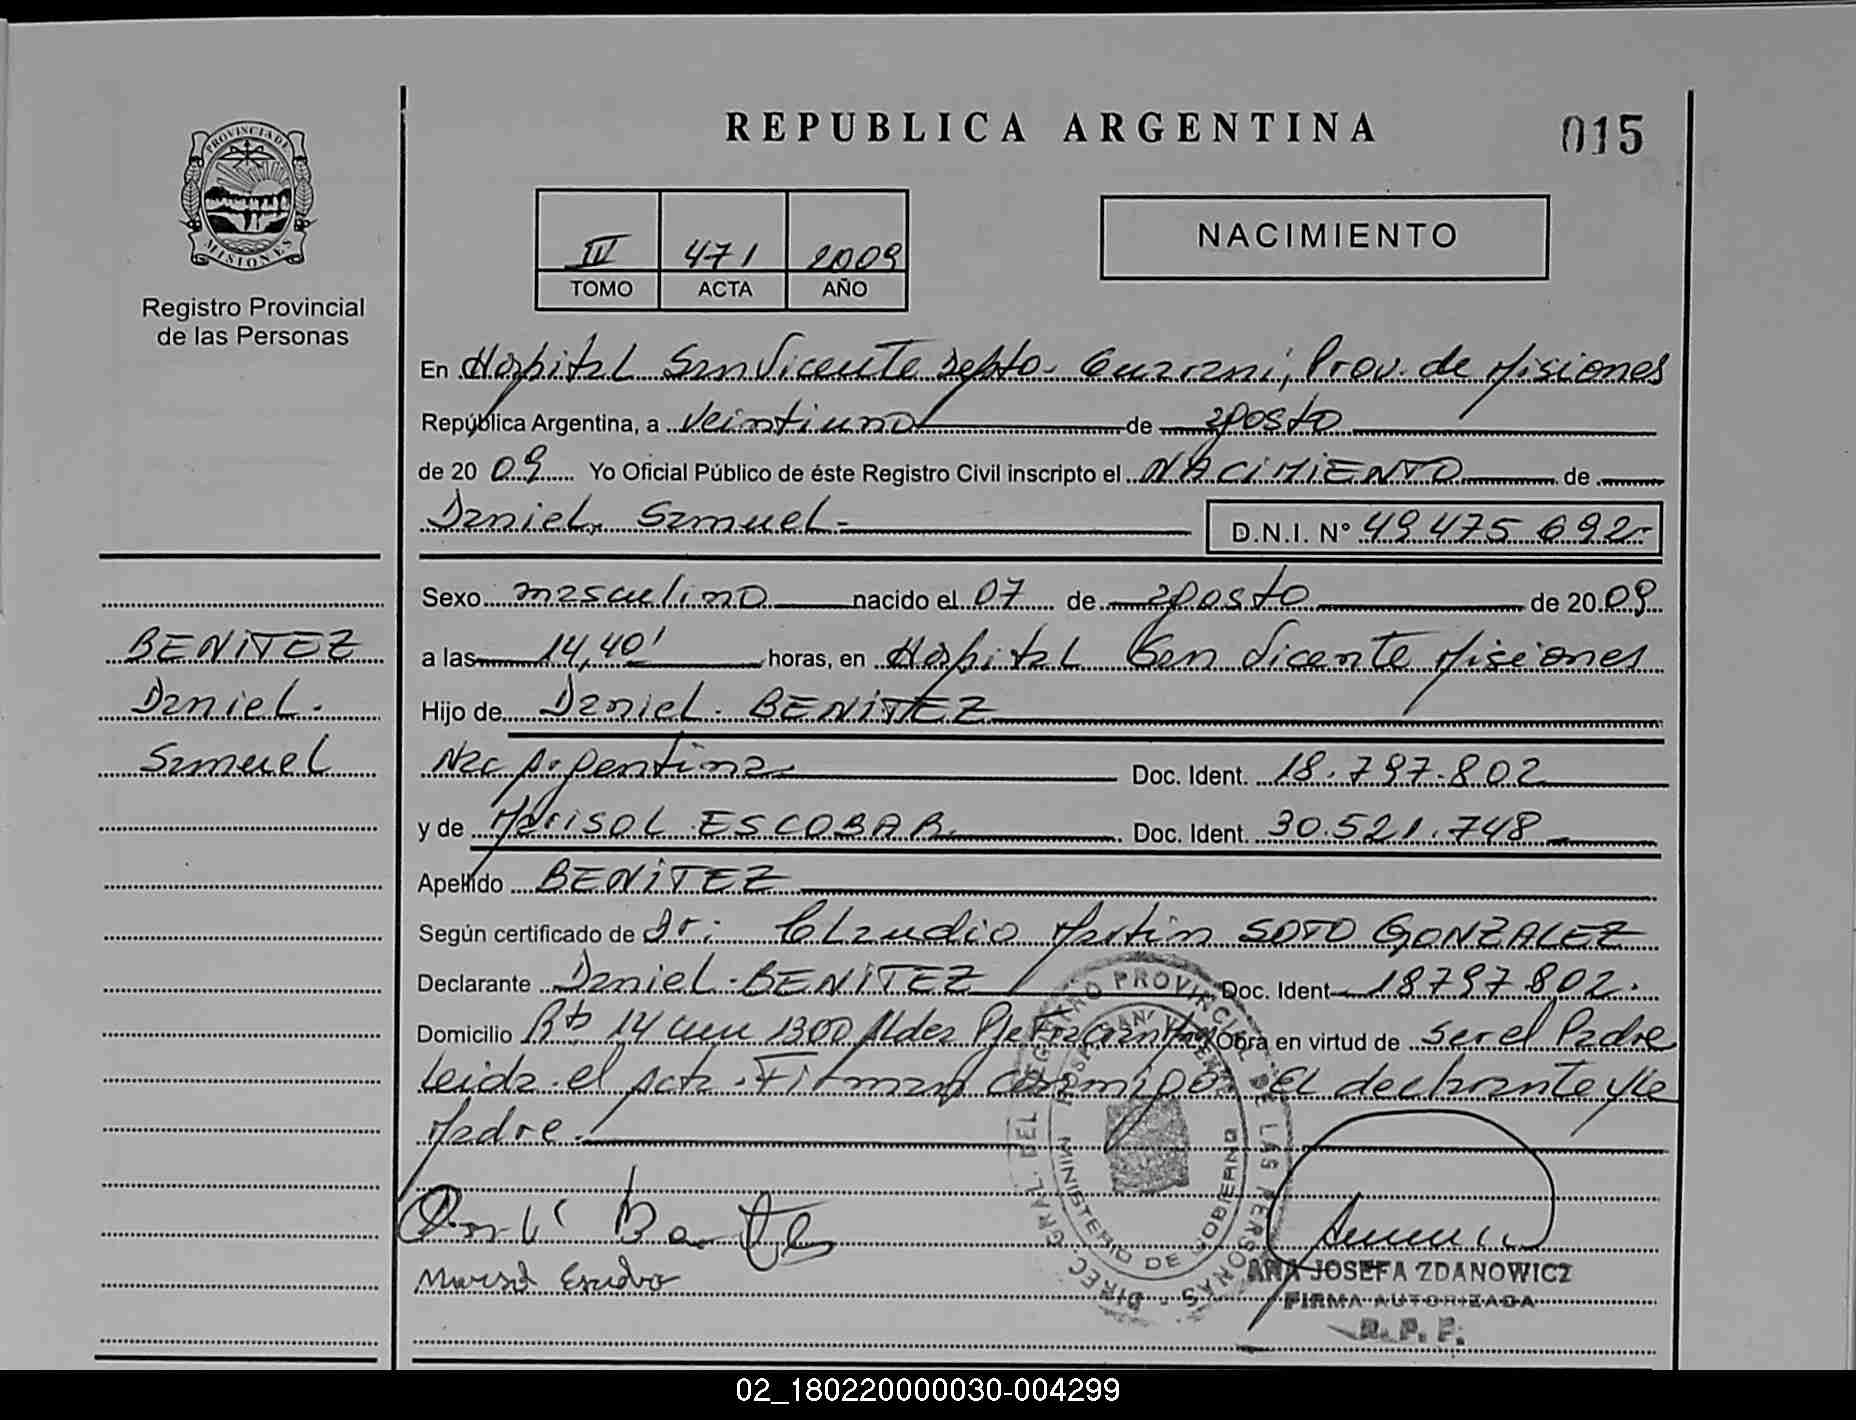 PROVINCIA DE
MISIONES
Registro Provincial
de las Personas
BENITEZ
Daniel.
Samuel
REPUBLICA ARGENTINA
015
III 471 2009
TOMO ACTA AÑO
NACIMIENTO
En Hospital San Vicente Depto. Guarani, Prov. de Misiones
República Argentina, a veintiuno de agosto
de 20 09 Yo Oficial Público de éste Registro Civil inscripto el NACIMIENTO de
Daniel, Samuel.- D.N.I. Nº 49 475 692.-
Sexo masculino nacido el 07 de agosto de 20 09
a las 14,40' horas, en Hospital San Vicente Misiones
Hijo de Daniel. BENITEZ
Nac Argentina. Doc. Ident. 18.797.802
y de Marisol ESCOBAR. Doc. Ident. 30.521.748
Apellido BENITEZ
Según certificado de Dr: Claudio Martin SOTO GONZALEZ
Declarante Daniel. BENITEZ Doc. Ident 18797802.
Domicilio Rta 14 1300 Aldea Obra en virtud de ser el Padre
leida el acta. Firman conmigo El declarante y la
Madre.
DIREC. GRAL. DEL REGISTRO PROVINCIAL DE LAS PERSONAS
MINISTERIO DE GOBIERNO
ANA JOSEFA ZDANOWICZ
FIRMA AUTORIZADA
R. P. P.
02_180220000030-004299